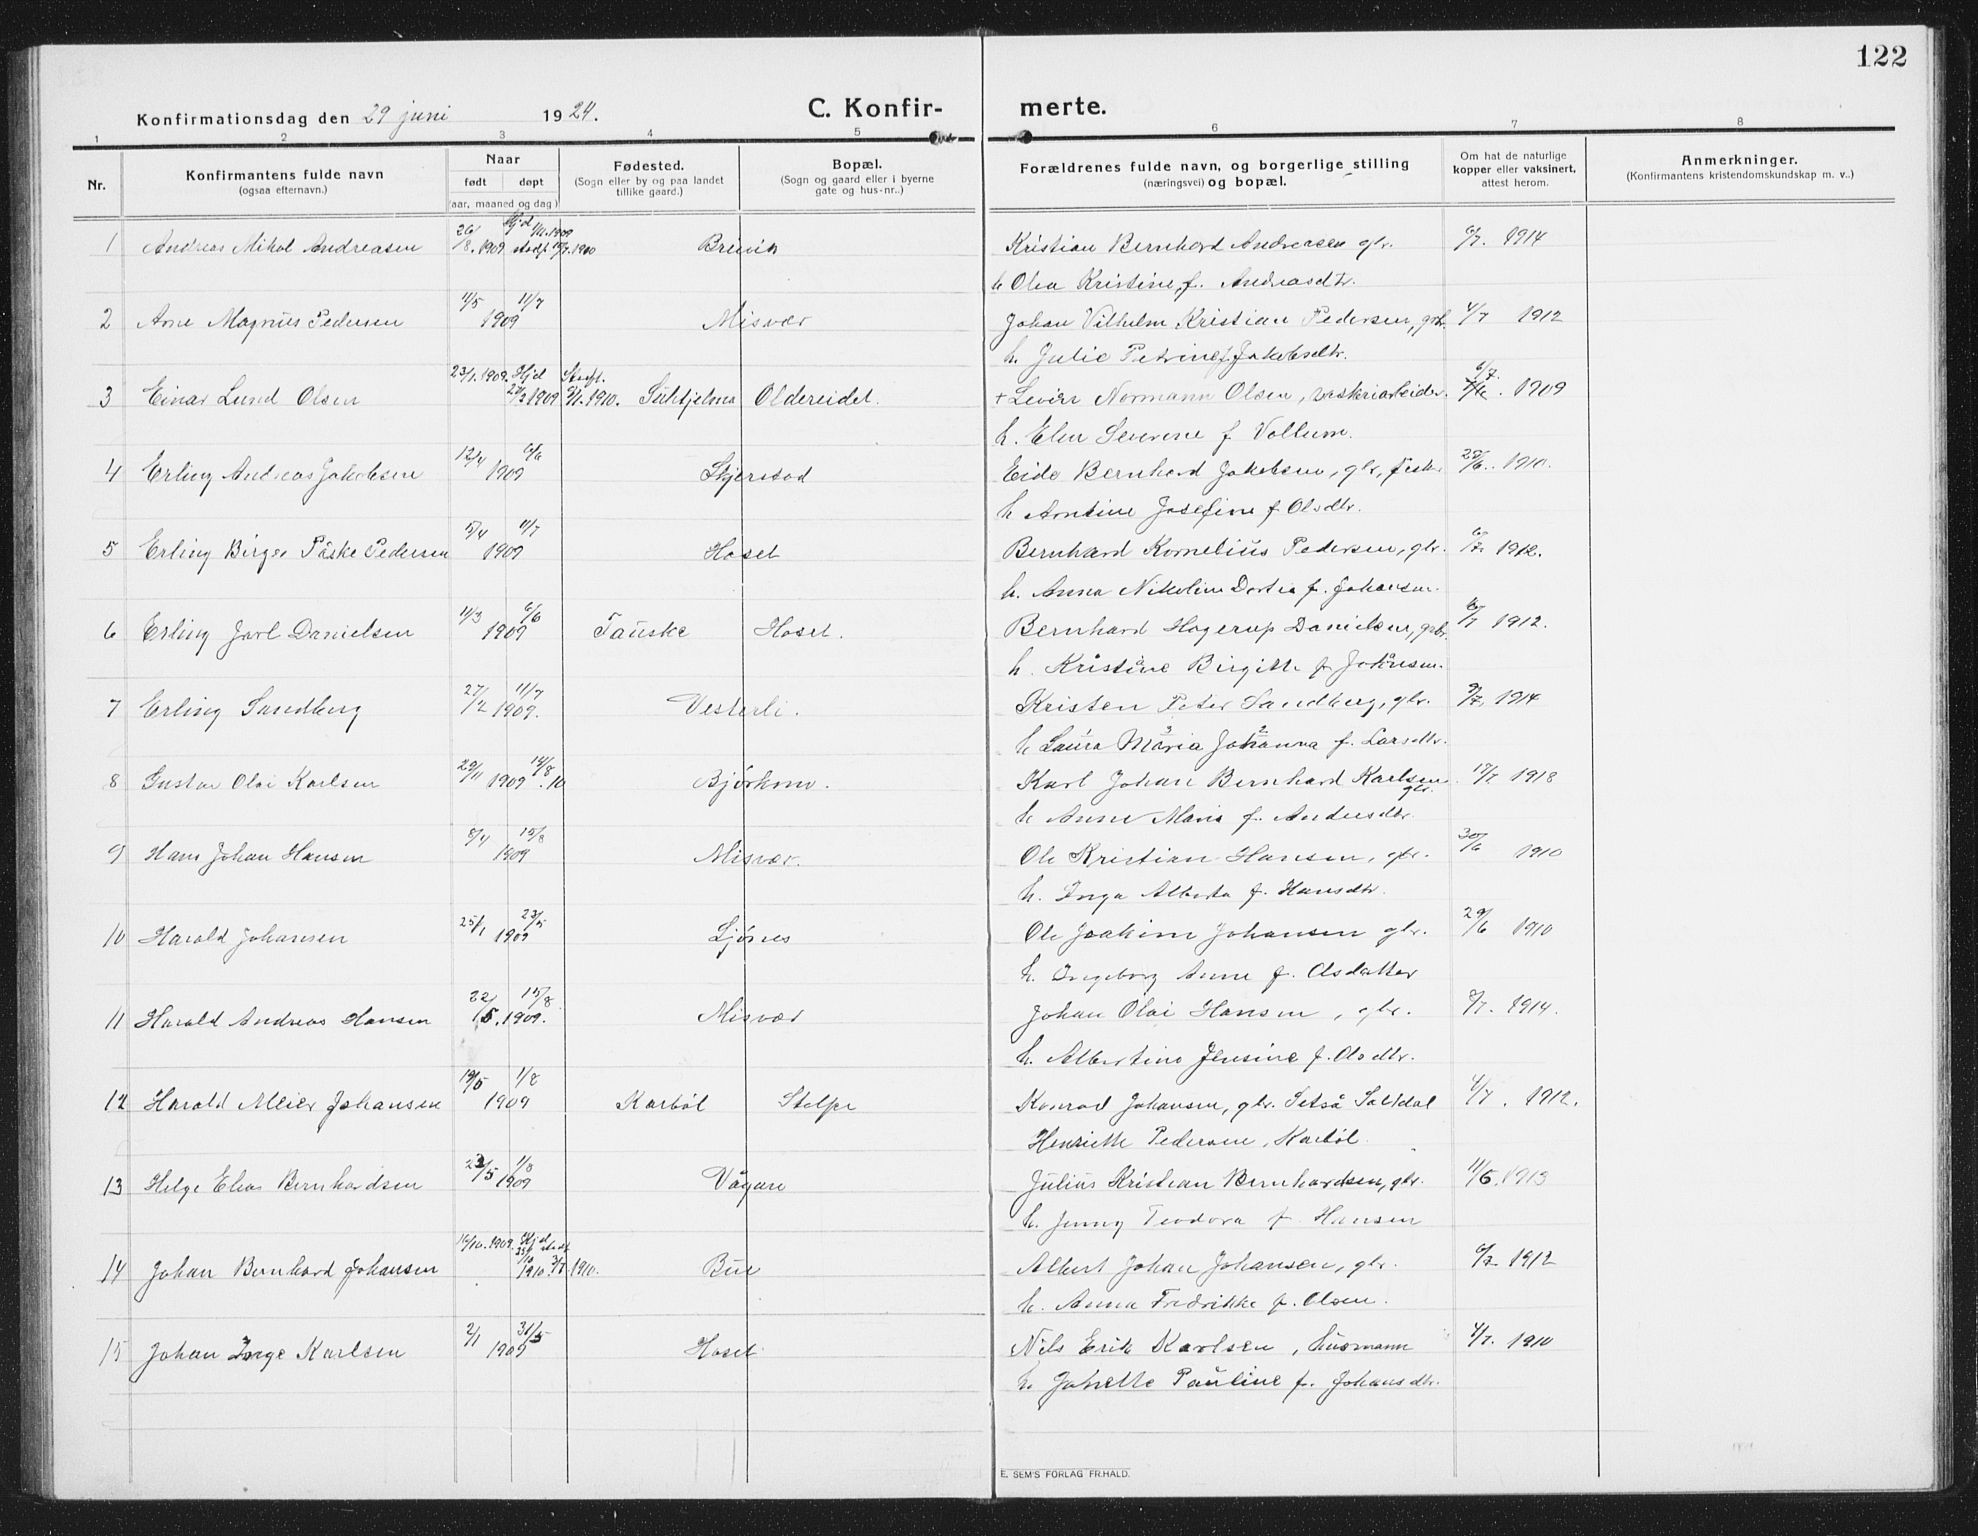 122
Konfirmationsdag den 29 juni 1924. C. Konfir- merte.
1 2 3 4 5 6 7 8
Nr. Konfirmantens fulde navn (ogsaa efternavn.) Naar født døpt (aar, maaned og dag) Fødested. (Sogn eller by og paa landet tillike gaard.) Bopæl. (Sogn og gaard eller i byerne gate og hus-nr..) Forældrenes fulde navn, og borgerlige stilling (næringsvei) og bopæl. Om hat de naturlige kopper eller vaksinert, attest herom. Anmerkninger. (Konfirmantens kristendomskundskap m. v..)
1 Andreas Mikal Andreasen 26/8. 1909 Brevik Kristian Bernhard Andreasen gbr. 6/7. 1914
h Olea Kristine f. Andreasdtr.
2 Arne Magnus Pedersen 11/5 11/7 1909 Misvær Johan Vilhelm Kristian Pedersen, gbr. 4/7 1912
h. Julie Petrine f. Jakobsdtr.
3 Einar Lund Olsen 23/1. 1909. Hjd 1909 1910. Sulitjelma Oldereidet. Normann Olsen, 6/7. 1909
h. Elen Severine f Vollum.
4 Erling Andreas Jakobsen 12/4 6/6 1909 Skjerstad Eide Bernhard Jakobsen, gbr, fisk. 1910.
h Arntine Josefine f Olsdtr.
5 Erling Birger Påske Pedersen 5/4 11/7 1909 Hoset Bernhard Kornelius Pedersen, gbr. 6/7. 1912.
h. Anna Nikoline Dortea f. Johansen.
6 Erling Jarl Danielsen 11/3 6/6 1909 Fauske Hoset. Bernhard Hagerup Danielsen, gbr. 1912.
h. Kristine Birgitte f Johansen.
7 Erling Sandberg 27/2 11/7 1909. Vesterli. Kristen Peter Sandberg, gbr. 9/7. 1914
h Laura Maria Johanna f. Larsdtr.
8 Gustav Olai Karlsen 29/11 1909 14/8.10 Bjørkmo. Karl Johan Bernhard Karlsen gbr. 1918
h Anne Maris f. Andersdtr.
9 Hans Johan Hansen 8/4 15/8 1909 Misvær. Ole Kristian Hansen, gbr. 30/6 1910
h. Inga Alberta f. Hansdtr.
10 Harald Johansen 25/1 23/5 1909 Ljønes Ole Joakim Johansen gbr. 29/6 1910
h. Ingeborg Anne f. Olsdatter
11 Harald Andreas Hansen 22/5. 15/8 1909. Misvær Johan Olai Hansen, gbr. 1914.
h. Albertine Jensine f. Olsdtr.
12 Harald Meier Johansen 19/5 1/8 1909 Karbøl Stolpe Konrad Johansen, gbr. Setså Saltdal 4/7. 1912.
Henriette Pedersen, Karbøl.
13 Helge Elias Bernhardsen 1/8 1909 Vågan Julius Kristian Bernhardsen, gbr. 11/6. 1913
h. Jenny Teodora f. Hansen
14 Johan Bernhard Johansen 16/10. 1909. Hjd 1910. 1910. Bue Albert Johan Johansen, gbr. 6/7 1912
h. Anna Fredrikke f. Olsen.
15 Johan Inge Karlsen 2/1 31/5 1909 Hoset Nils Erik Karlsen, husmann 4/7. 1910
h. Janette Pauline f. Johansdtr.
E. SEM'S FORLAG FR.HALD.